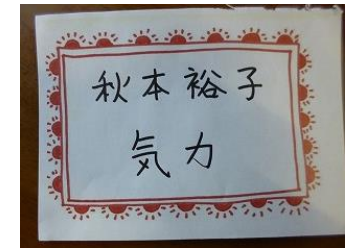 秋本裕子
気力